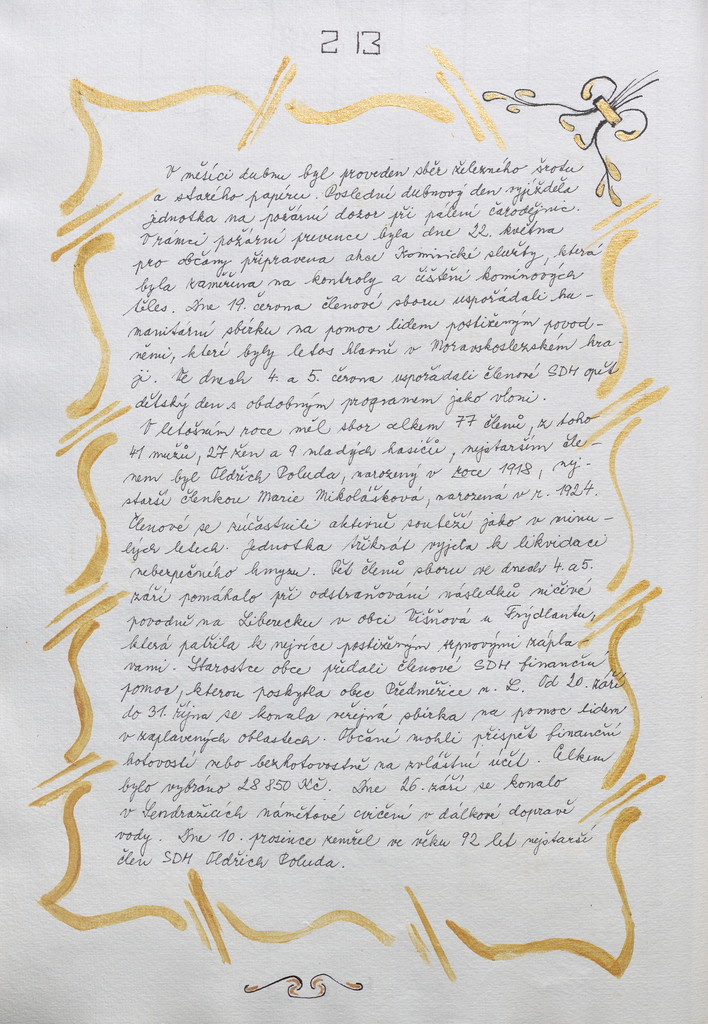 213
V měsíci dubnu byl proveden sběr železného šrotu
a starého papíru. Poslední dubnový den vyjížděla
jednotka na požární dozor při pálení čarodějnic.
V rámci požární prevence byla dne 22. května
pro občany připravena akce Kominické služby, která
byla zaměřena na kontroly a čištění komínových
těles. Dne 19. června členové sboru uspořádali hu-
manitární sbírku na pomoc lidem postiženým povod-
němi, které byly letos hlavně v Moravskoslezském kra-
ji. Ve dnech 4. a 5. června uspořádali členové SDH opět
dětský den s obdobným programem jako vloni.
V letošním roce měl sbor celkem 77 členů, z toho
41 mužů, 27 žen a 9 mladých hasičů, nejstarším čle-
nem byl Oldřich Poluda, narozený v roce 1918, nej-
starší členkou Marie Mikolášková, narozená v r. 1924.
Členové se zúčastnili aktivně soutěží jako v minu-
lých letech. Jednotka třikrát vyjela k likvidaci
nebezpečného hmyzu. Pět členů sboru ve dnech 4. a 5.
září pomáhalo při odstraňování následků ničivé
povodně na Liberecku v obci Višňová u Frýdlantu,
která patřila k nejvíce postiženým srpnovými zápla-
vami. Starostce obce předali členové SDH finanční
pomoc, kterou poskytla obec Předměřice n. L. Od 20. září
do 31. října se konala veřejná sbírka na pomoc lidem
v zaplavených oblastech. Občané mohli přispět finanční
hotovostí nebo bezhotovostně na zvláštní účet. Celkem
bylo vybráno 28 850 Kč. Dne 26. září se konalo
v Sendražicích námětové cvičení v dálkové dopravě
vody. Dne 10. prosince zemřel ve věku 92 let nejstarší
člen SDH Oldřich Poluda.